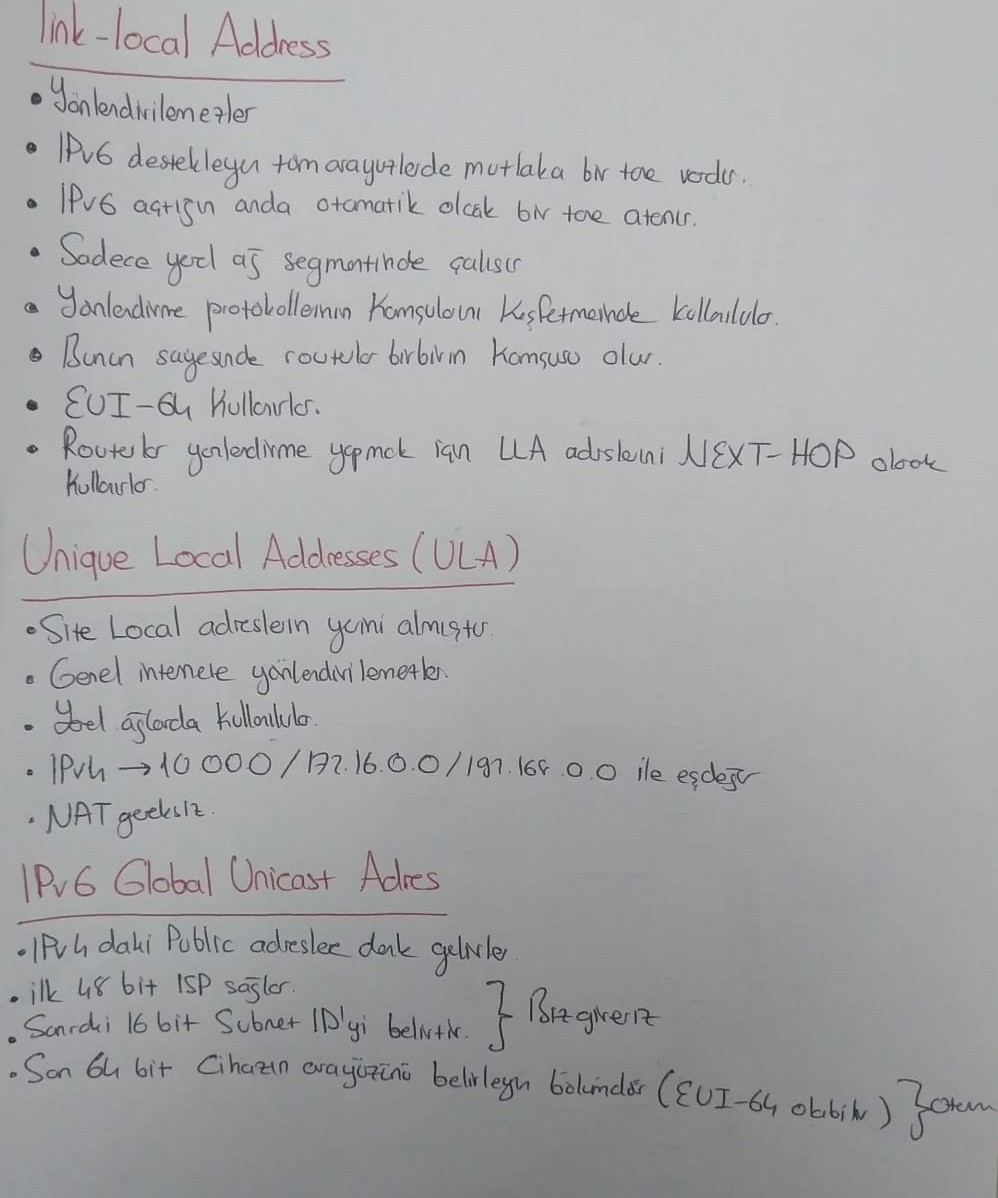 link-local Address
• Yönlendirilemezler
• IPv6 destekleyen tüm arayüzlerde mutlaka bir tane vardır.
• IPv6 açtığın anda otomatik olarak bir tane atanır.
• Sadece yerel ağ segmentinde çalışır
• Yönlendirme protokollerinin Komşularını Keşfetmesinde kullanılır.
• Bunun sayesinde routerlar birbirin Komşusu olur.
• EUI-64 Kullanırlar.
• Routerlar yönlendirme yapmak için LLA adreslerini NEXT-HOP olarak
Kullanırlar.
Unique Local Addresses (ULA)
• Site Local adreslerin yerini almıştır.
• Genel internete yönlendirilemezler.
• Yerel ağlarda kullanılırlar.
• IPv4 → 10 0 0 0 / 172.16.0.0 / 192.168.0.0 ile eşdeğer
• NAT gereksiz.
IPv6 Global Unicast Adres
• IPv4 daki Public adreslere denk gelirler.
• ilk 48 bit ISP sağlar.
• Sonraki 16 bit Subnet ID'yi belirtir. } Biz gireriz
• Son 64 bit Cihazın arayüzünü belirleyen bölümdür (EUI-64 olabilir) }